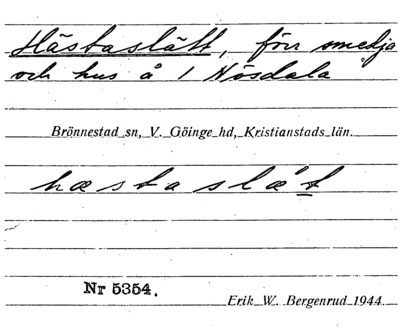 Hästaslätt, förr smedja
och hus å 1 Nösdala
Brönnestad sn, V. Göinge hd, Kristianstads län.
hæstaslæt
Nr 5354.
Erik W. Bergenrud 1944.